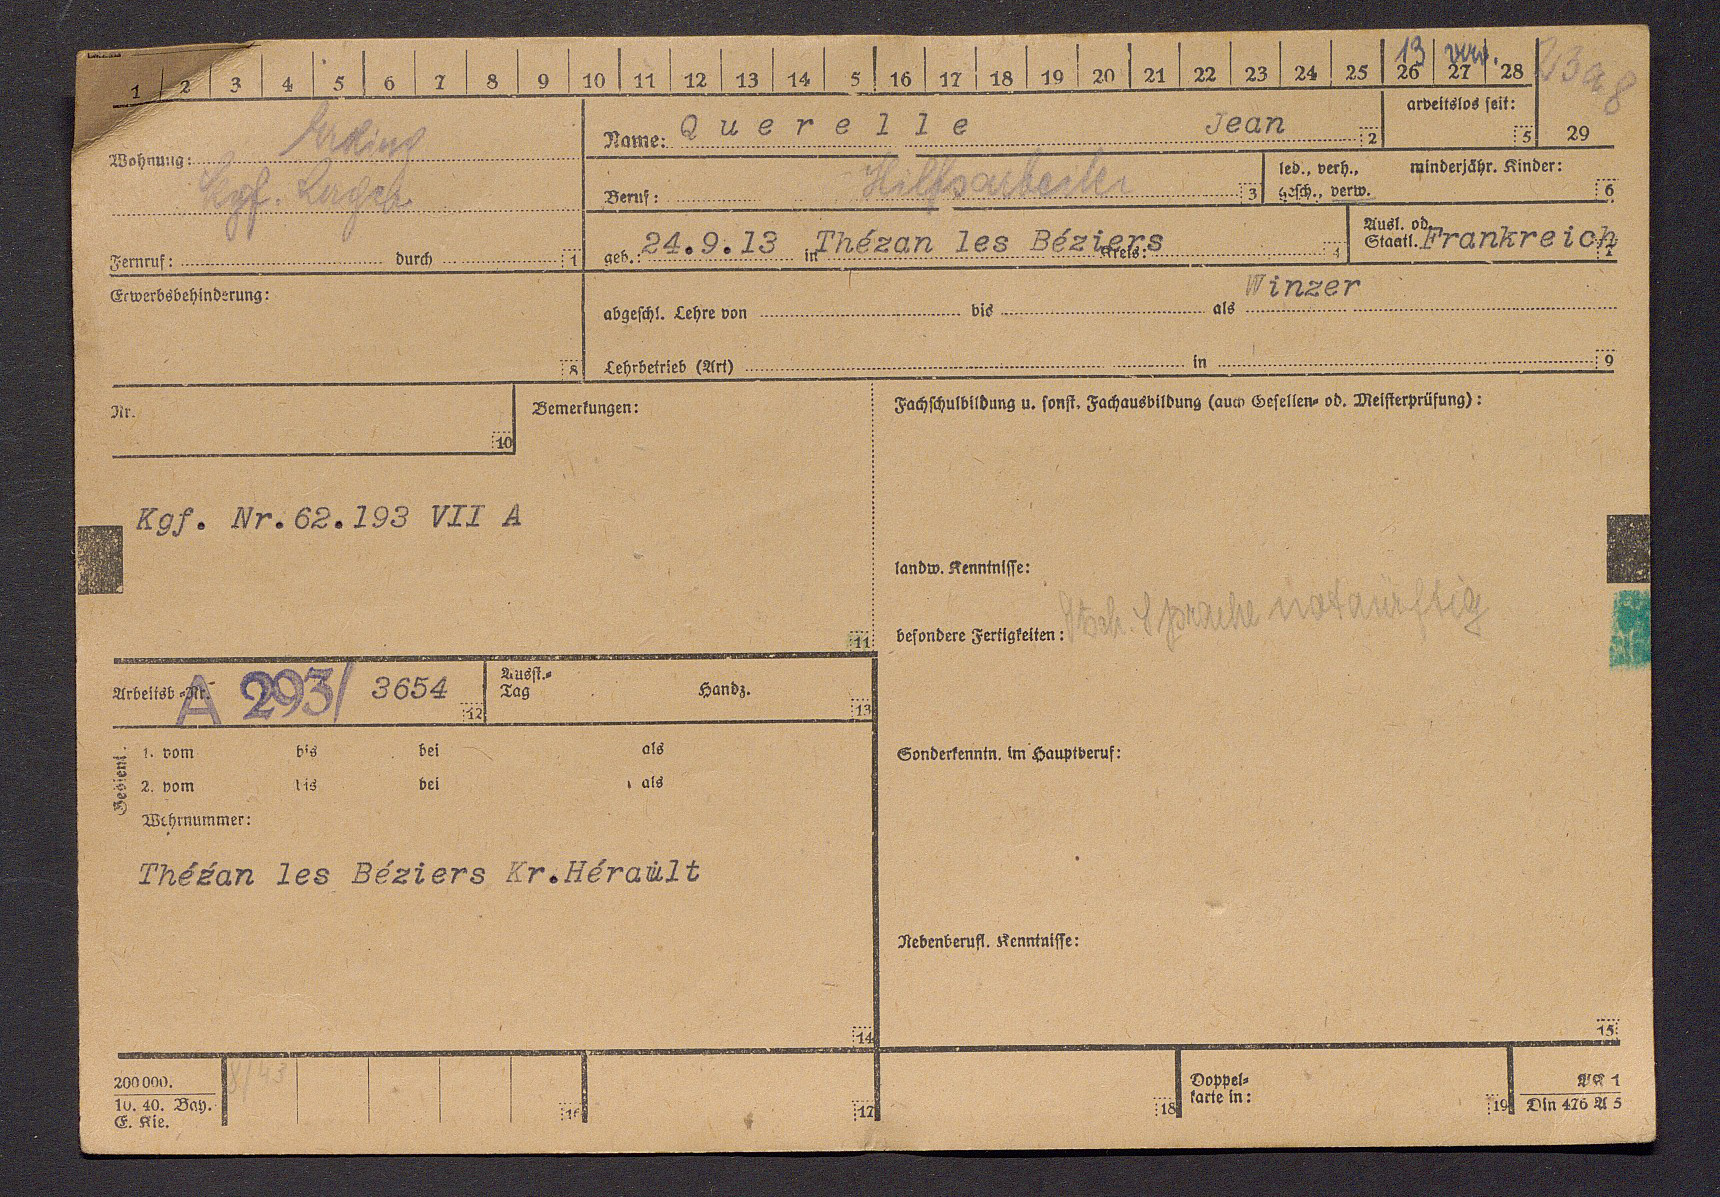 1 2 3 4 5 6 7 8 9 10 11 12 13 14 5 16 17 18 19 20 21 22 23 24 25 26 27 28
13 verw.
Wohnung: Erding
Kgf. Lager
Fernruf: durch 1
Name: Querelle Jean 2
arbeitslos seit: 5
29
Beruf: Hilfsarbeiter 3
led., verh., gesch., verw.
minderjähr. Kinder: 6
geb.: 24.9.13 in Thézan les Béziers Kreis: 4
Ausl. od. Staatl. Frankreich
Erwerbsbehinderung: 8
abgeschl. Lehre von bis als Winzer
Lehrbetrieb (Art) in 9
Nr. 10
Bemerkungen:
Fachschulbildung u. sonst. Fachausbildung (auch Gesellen- od. Meisterprüfung):
Kgf. Nr.62.193 VII A
landw. Kenntnisse:
besondere Fertigkeiten: Dtsch. Sprache notdürftig
11
Arbeitsb.-Nr. A 293/ 3654 12
Ausst.-Tag Handz. 13
Gedient:
1. vom bis bei als
2. vom bis bei als
Wehrnummer:
Sonderkenntn. im Hauptberuf:
Thézan les Béziers Kr.Hérault
Nebenberufl. Kenntnisse:
14
15
200000.
10. 40. Bay.
E. Kie.
8/43
16
17
18
Doppel-
karte in: 19
Din 476 A 5